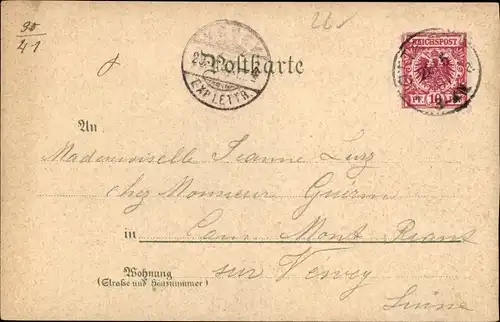 30
41
26
Postkarte
EXP. LETTR.
REICHSPOST
PF. 10 PF.
An
Mademoiselle Jeanne Luiz
chez Monsieur Guérin
in Mont Riant
Wohnung sur Vevey
(Straße und Hausnummer)
Suisse